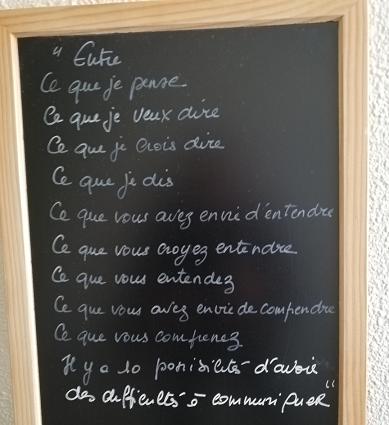 " Entre
Ce que je pense
Ce que je veux dire
Ce que je crois dire
Ce que je dis
Ce que vous avez envie d'entendre
Ce que vous croyez entendre
Ce que vous entendez
Ce que vous avez envie de comprendre
Ce que vous comprenez
Il y a 10 possibilités d'avoir
des difficultés à communiquer"